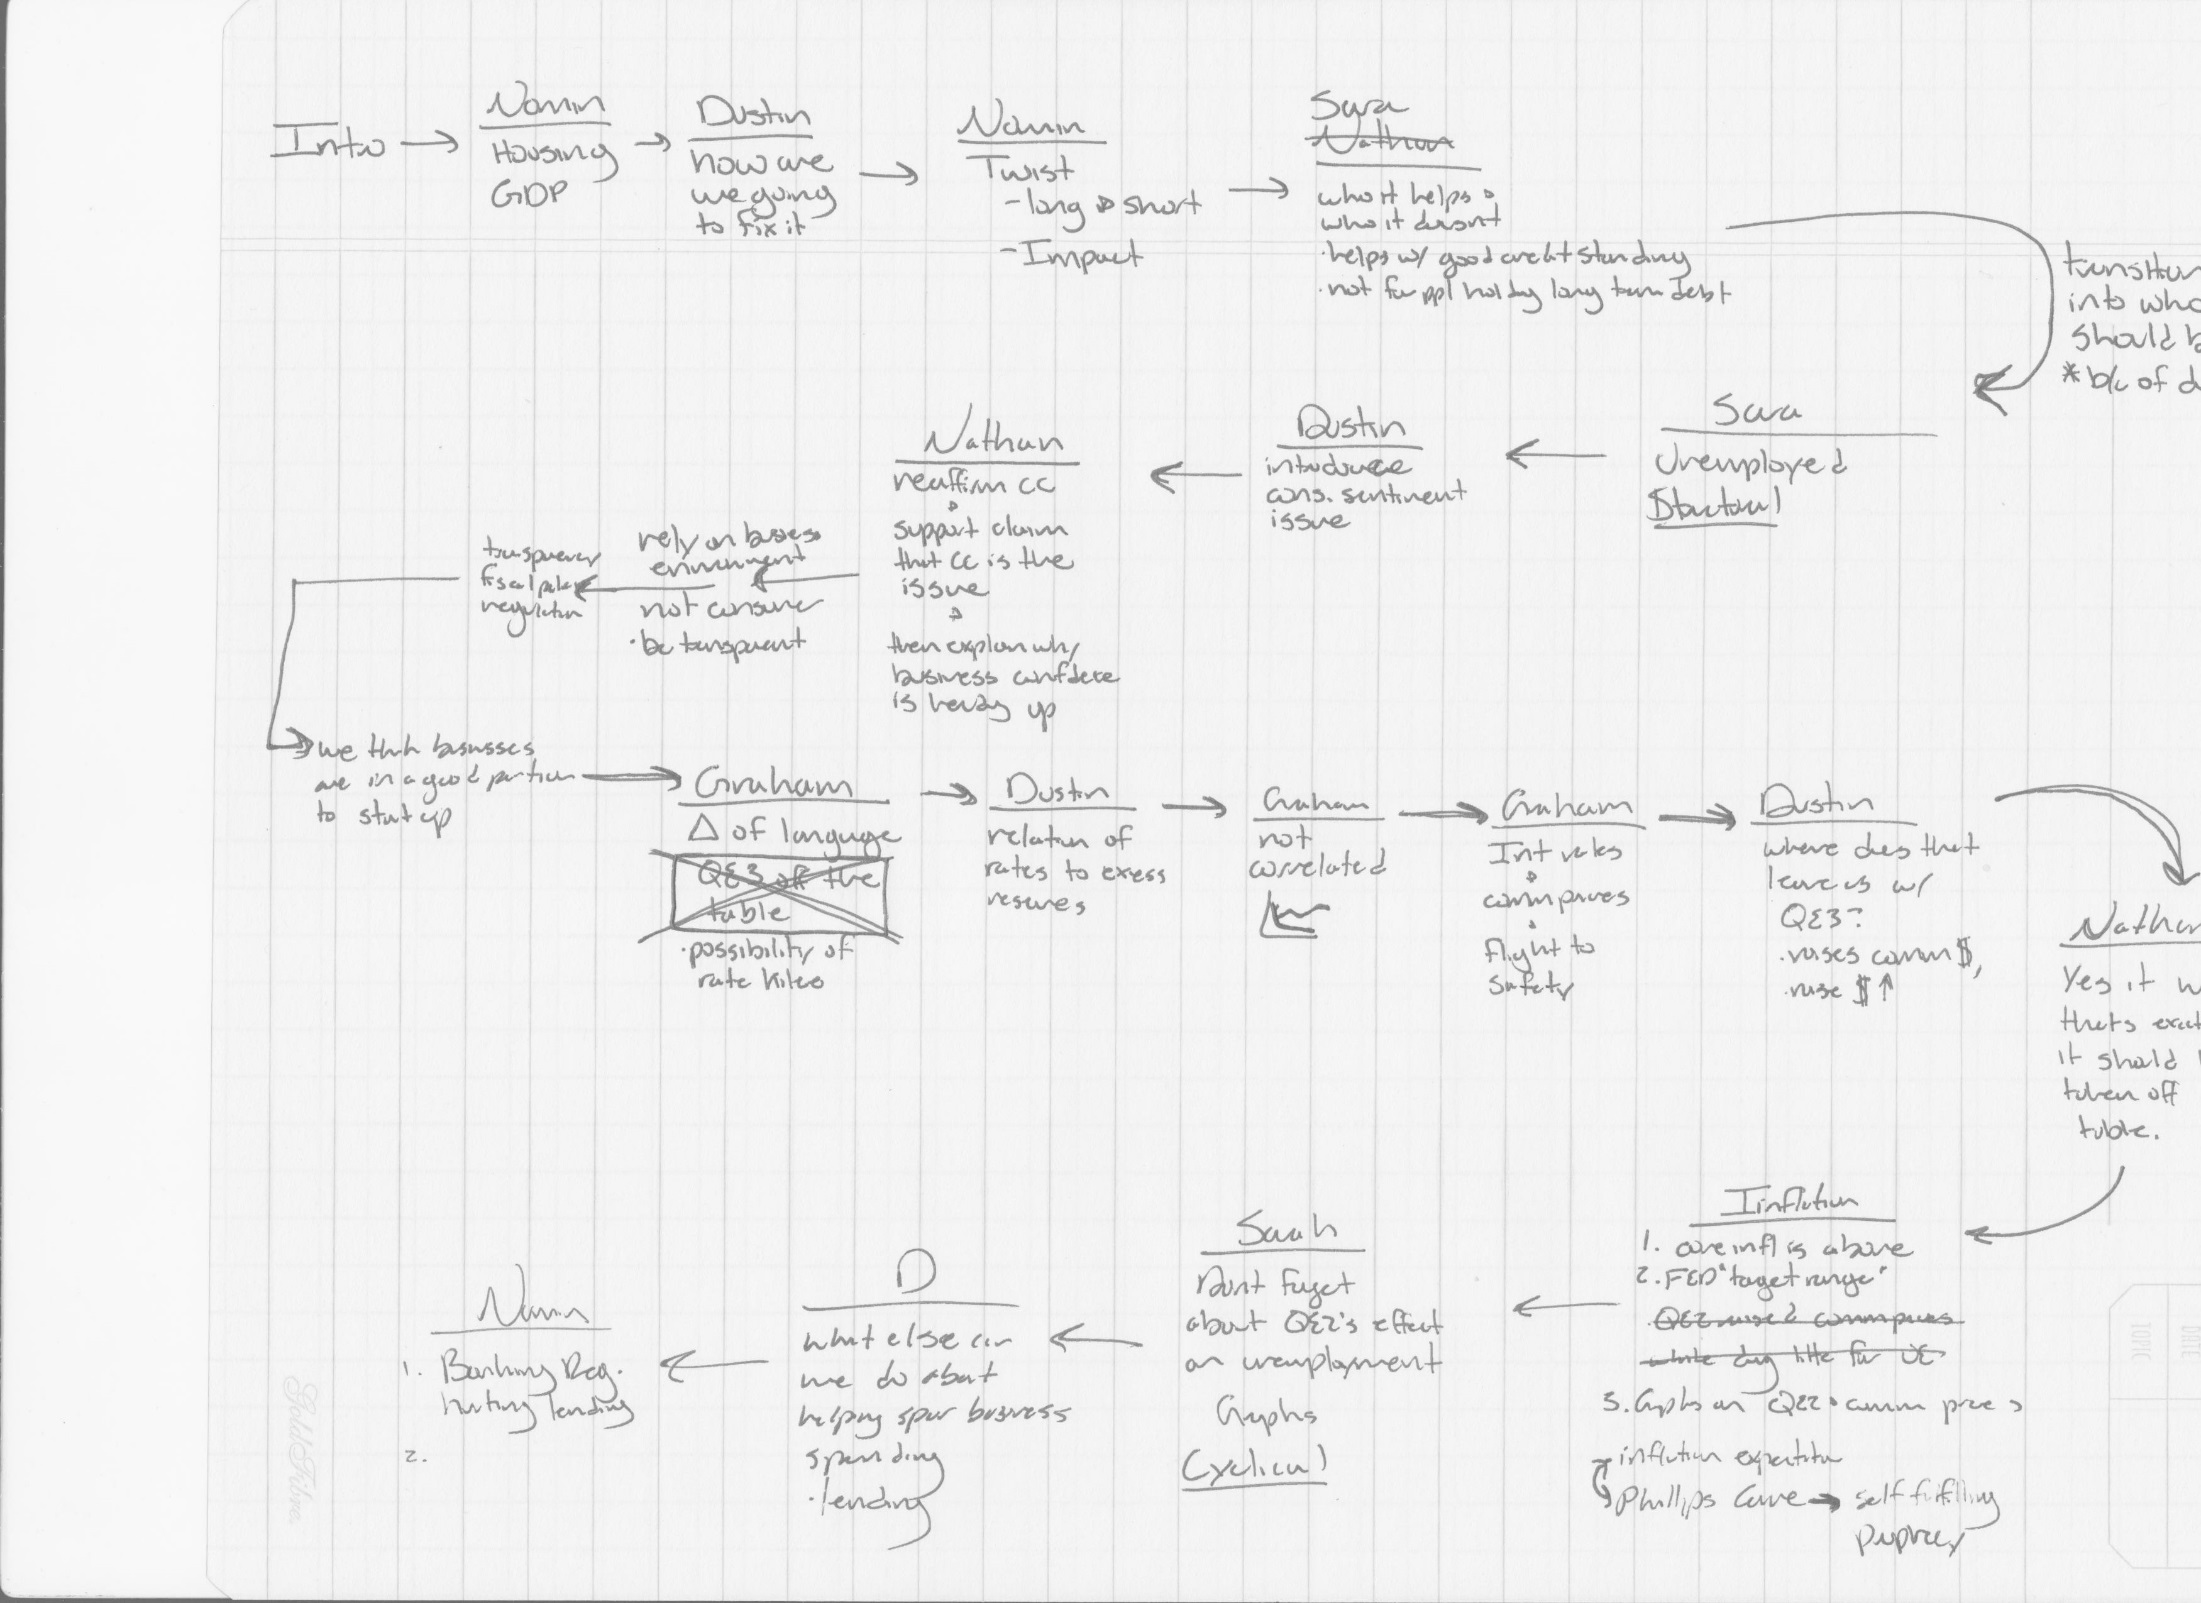 Intro
Nomin
Housing
GDP
Dustin
how are
we going
to fix it
Nomin
Twist
- long → short
- Impact
Sara
Nathan
who it helps &
who it doesnt
· helps w/ good credit standing
· not for ppl holding long term debt
transition
into who
should b
* b/c of d
Sara
Unemployed
Structural
Dustin
introduce
cons. sentiment
issue
Nathan
reaffirm CC
support claim
that CC is the
issue
then explain why
business confidence
is up
rely on business
environment
not consumer
· be transparent
transparency
fiscal policy
regulation
we think businesses
are in a good position
to start up
Graham
Δ of language
QE3 off the
table
· possibility of
rate hikes
Dustin
relation of
rates to exess
reserves
Graham
not
correlated
Graham
Int rates
comm prices
flight to
safety
Dustin
where does that
leave us w/
QE3?
· raises comm $,
· raise $ ↑
Nathan
Yes it w
thats exact
it should b
taken off
table.
Iinflation
1. core infl is above
2. FED "target range"
QE2 raised comm prices
while doing little for UE
3. Graphs on QE2 & comm prices
inflation expectation
Phillips Curve → self fulfilling
prophecy
Sarah
Dont forget
about QE2's effect
on unemployment
Graphs
Cyclical
D
what else can
we do about
helping spur business
spending
· lending
Nomin
1. Banking Reg.
hurting lending
2.
GoldFibre
TOPIC
DATE